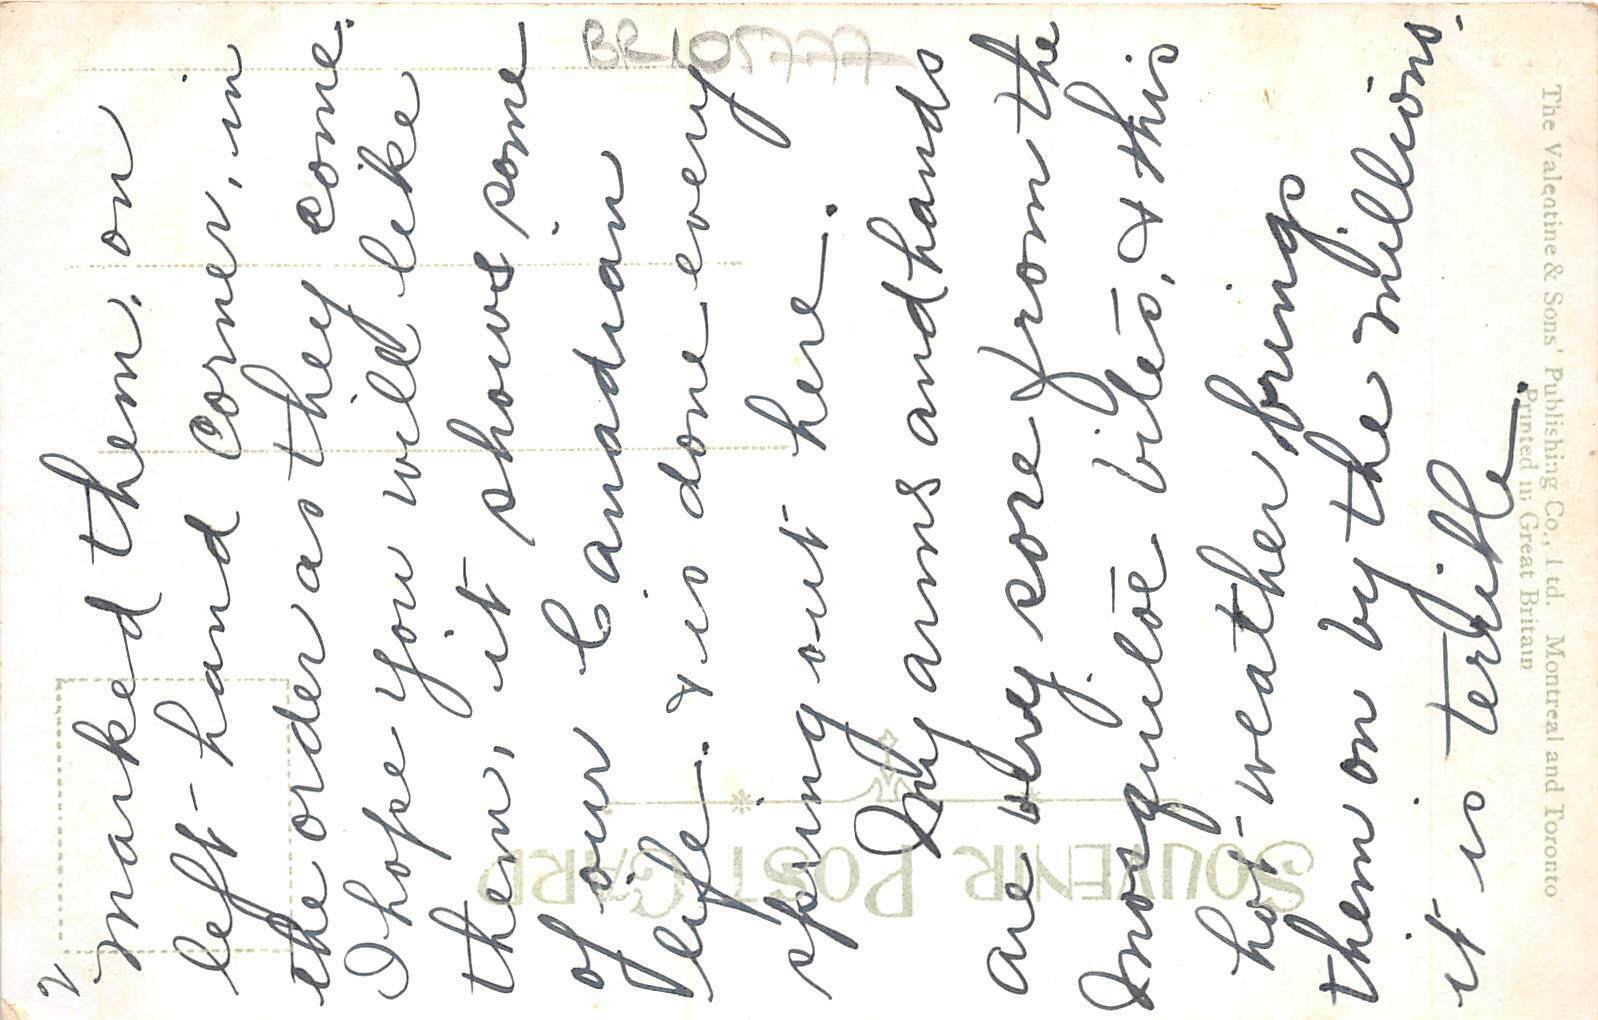 2
marked them, on
left-hand corner, in
the order as they come.
I hope you will like
them, it shows some
of our Canadian
life. & is done every
spring out here.
My arms and hands
are very sore from the
Mosquitoe bites, & this
hot-weather, brings
them on by the millions.
it is terible.
BR105777
SOUVENIR POST CARD
The Valentine & Sons' Publishing Co., Ltd. Montreal and Toronto
Printed in Great Britain